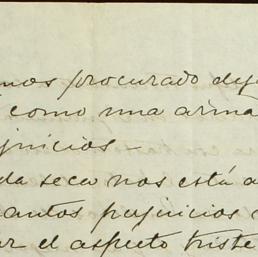 mos procurado dej
como una arma
juicios-
da seca nos está a
antos perjuicios
ar el aspecto triste